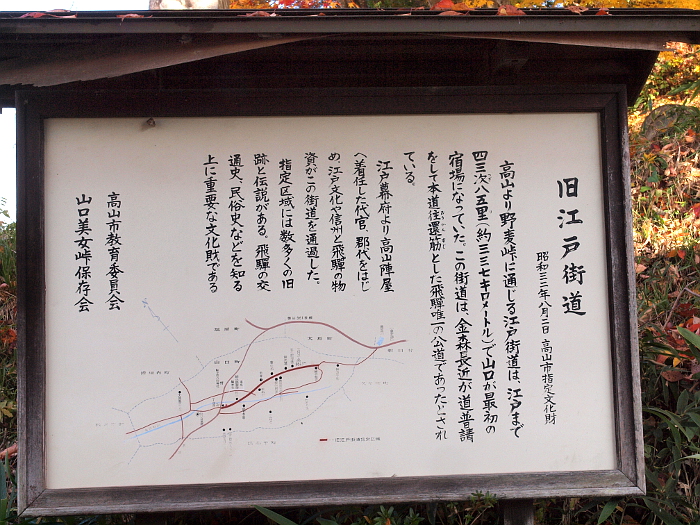 旧江戸街道
昭和三二年八月一日 高山市指定文化財
高山より野麦峠に通じる江戸街道は、江戸まで
四三次八五里(約三三七キロメートル)で山口が最初の
宿場になっていた。この街道は、金森長近が道普請
をして本道往還筋とした飛騨唯一の公道であったとされ
ている。
江戸幕府より高山陣屋
へ着任した代官、郡代をはじ
め、江戸文化や信州と飛騨の物
資がこの街道を通過した。
指定区域には数多くの旧
跡と伝説がある。飛騨の交
通史、民俗史などを知る
上に重要な文化財である
高山市教育委員会
山口美女峠保存会